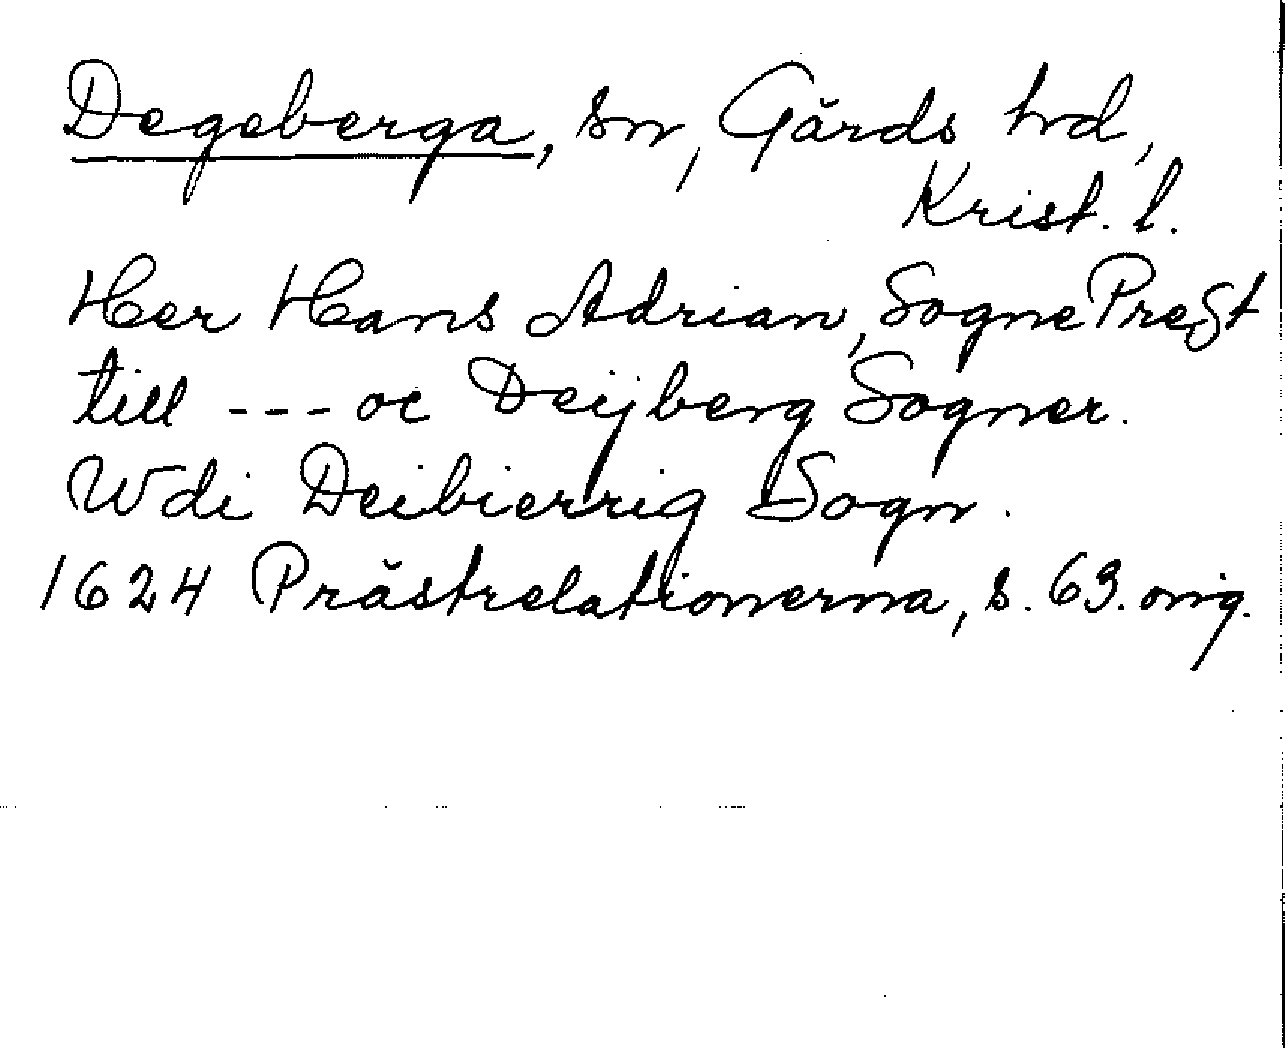 Degeberga, sn, Gärds hd,
Krist. l.
Her Hans Adrian, Sogne Prest
till --- oc Deijberg Sogner.
Wdi Deibierrig Sogn.
1624 Prästrelationerna, s. 63. orig.